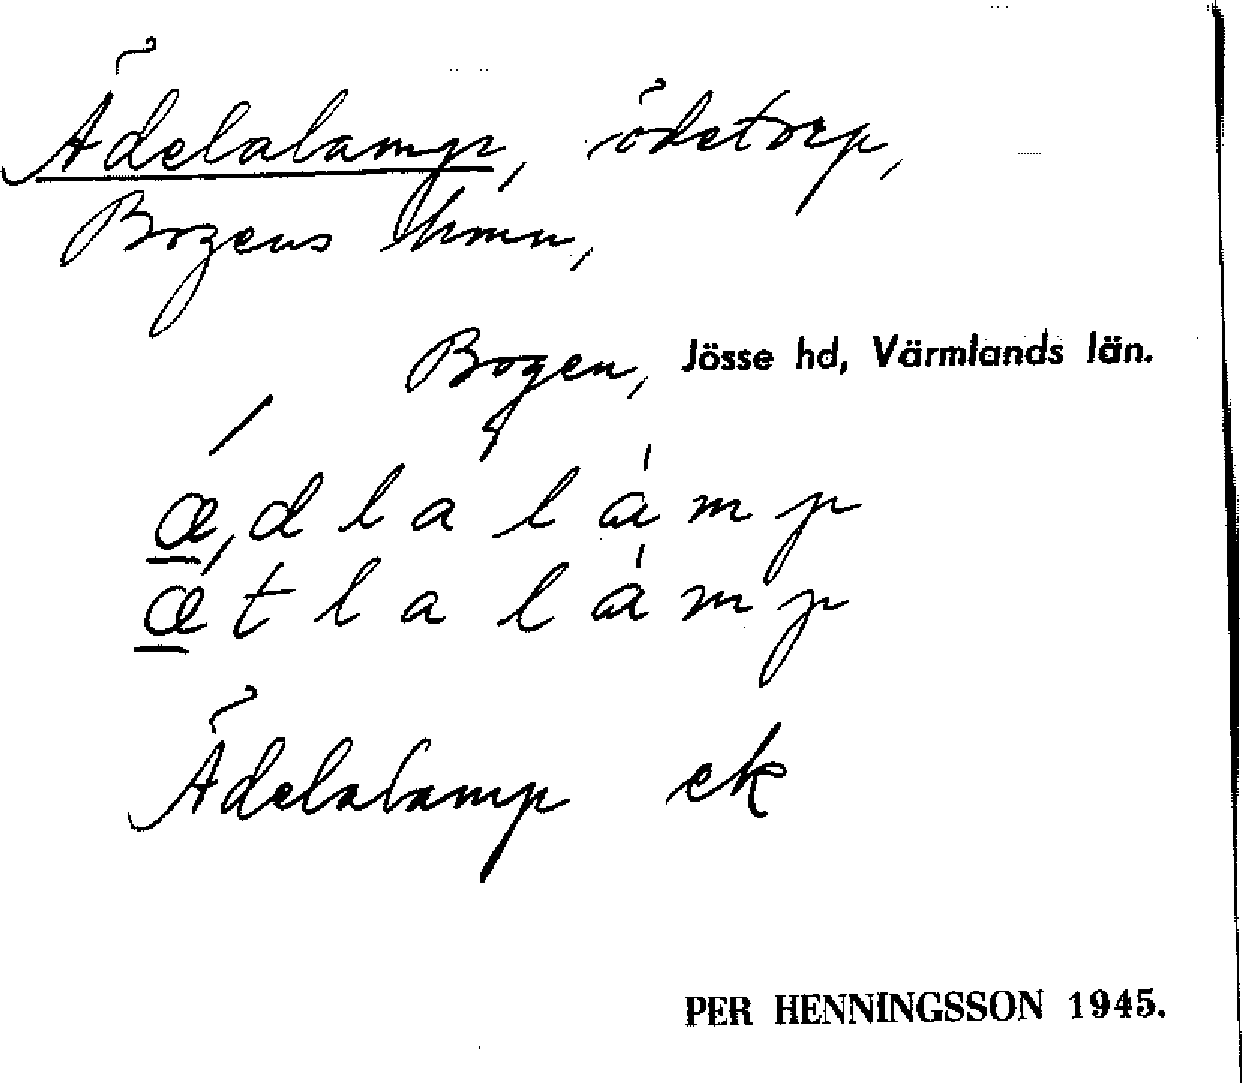 Ädelalamp, ödetorp,
Bogens hmn,
Bogen, Jösse hd, Värmlands län.
ǽ̲,dlalámp
ǽ̲tlalámp
Ädelalamp ek
PER HENNINGSSON 1945.